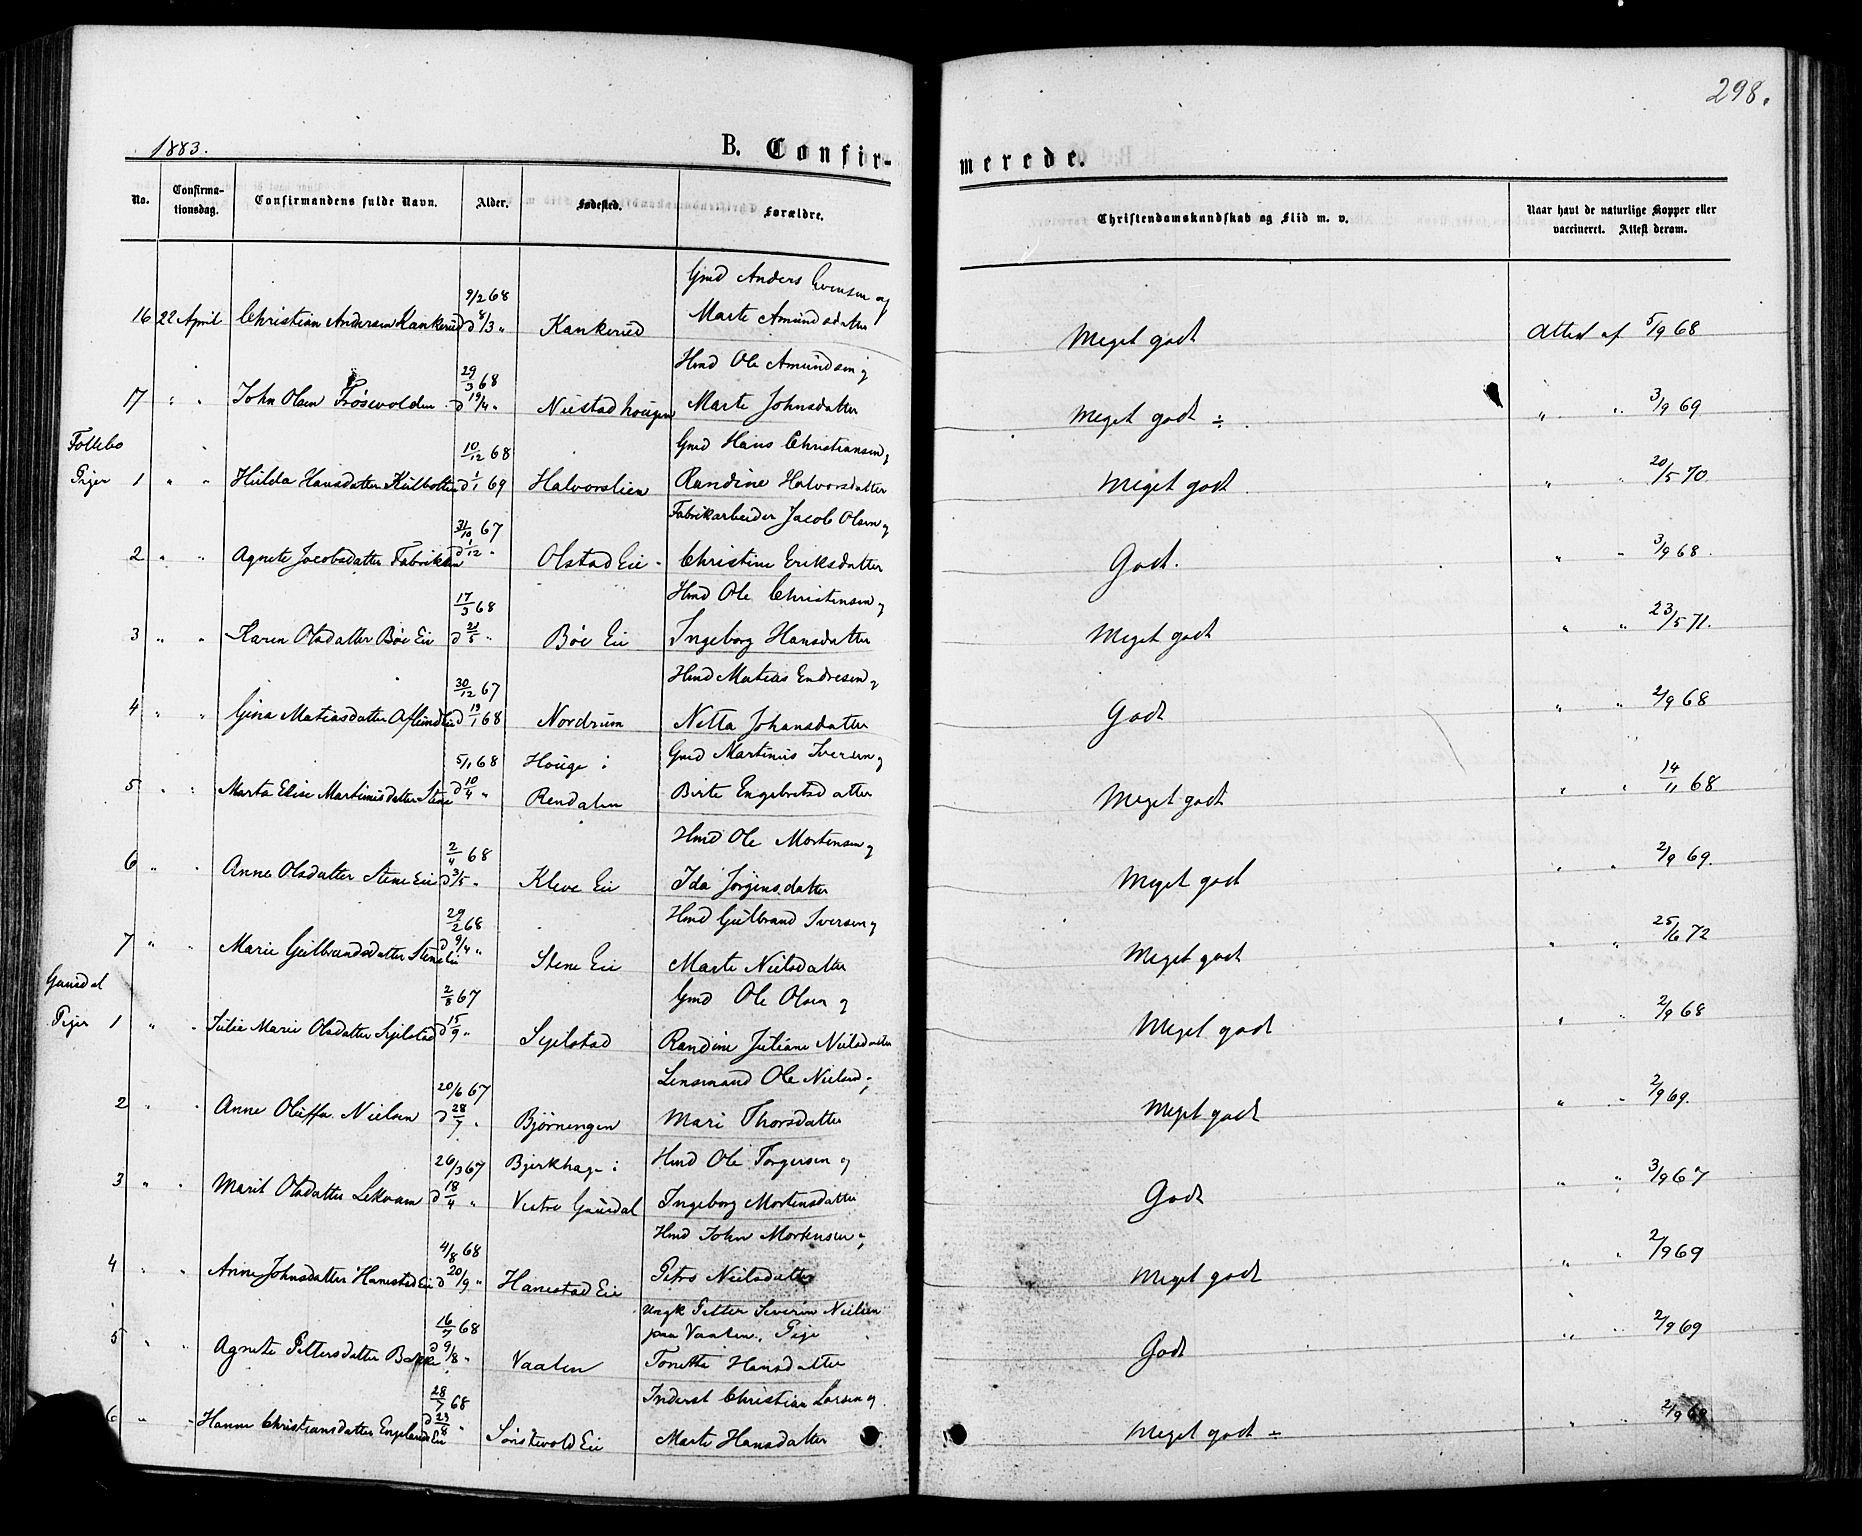 298.
1883.
B. Confir-
merede.
No.
Confirma-
tionsdag.
Confirmandens fulde Navn.
Alder.
Fødested.
Forældre.
Christendomskundskab og Flid m. v.
Naar havt de naturlige Kopper eller
vaccineret. Attest derom.
9/2 68 Gmd Anders Evensen og
16 22 April Christian Andersen Kankerud d 8/3 " Kankerud Marte Amundsdatter Meget godt Attest af 5/9 68
29/3 68 Hmd Ole Amundsen og
17 " " John Olsen Frøsevolden d 19/4 " Niestadhougen Marte Johnsdatter Meget godt ÷ " " 3/9 69
Follebo 10/12 68 Gmd Hans Christiansen og
Piger 1 " " Hilda Hansdatter Kulbotten d 1/1 69 Halvorslien Randine Halvorsdatter Meget godt " " 20/5 70.
31/10 67 Fabrikarbeider Jacob Olsen og
2 " " Agnete Jacobsdatter Fabrikken d 1/12 " Olstad Eie Christine Eriksdatter Godt. " " 3/9 68.
17/3 68 Hmd Ole Christensen og
3 " " Karen Olsdatter Bøe Eie d 21/5 " Bøe Eie Ingeborg Hansdatter Meget godt " " 23/5 71.
30/12 67 Hmd Matias Endresen og
4 " " Gina Matiasdatter d 19/1 68 Nordrum Netta Johansdatter Godt " " 2/9 68
5/1 68 Houge i Gmd Martinus Iversen og
5 " " Marta Elise Martinusdatter Stene d 10/4 " Rendalen Birte Engebretsdatter Meget godt " " 14/11 68
2/4 68 Hmd Ole Mortensen og
6 " " Anne Olsdatter Stene Eie d 3/5 " Kleve Eie Ida Jørgensdatter Meget godt " " 2/9 69.
29/2 68 Hmd Gulbrand Iversen og
7 " " Marie Gulbrandsdatter Stene Eie d 9/4 " Stene Eie Marte Nielsdatter Meget godt " " 25/6 72
Gausdal 2/8 67 Gmd Ole Olsen og
Piger 1 " " Julie Marie Olsdatter Sejelstad d 15/9 " Sejelstad Randine Juliane Nielsdatter Meget godt " " 2/9 68
20/6 67 Lensmand Ole Nielsen og
2 " " Anne Oluffa Nielsen d 28/7 " Bjørningen Mari Thorsdatter Meget godt " " 2/9 69.
26/3 67 Bjerkhage i Hmd Ole Torgersen og
3 " " Marit Olsdatter Lekvam d 18/4 " Vestre Gausdal Ingeborg Mortensdatter Godt " " 3/9 67
4/8 68 Hmd John Mortensen og
4 " " Anne Johnsdatter Hanestad Eie d 20/9 " Hanestad Eie Petro Nielsdatter Meget godt " " 2/9 69
16/7 68 Ungk Petter Severin Nielsen
paa Vaalen, Pige
5 " " Agnete Pettersdatter Bakke d 9/8 " Vaalen Tonetta Hansdatter Godt " " 2/9 69
28/7 68 Inderst Christian Larsen og
6 " " Hanne Christiansdatter Engeland Eie d 23/8 " Sønstevold Eie Marte Hansdatter Meget godt ÷ " " 2/9 69